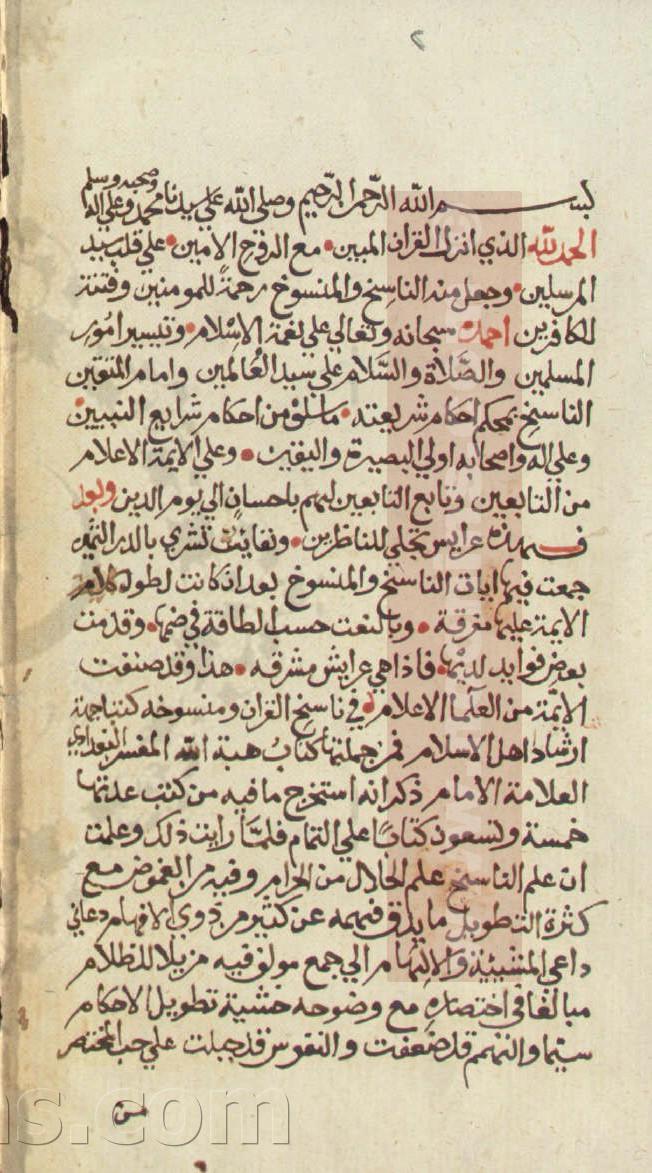 ٢
بسم الله الرحمن الرحيم وصلى الله على سيدنا محمد وعلى اله وصحبه وسلم
الحمد لله الذي انزل القران المبين مع الروح الامين علي قلب سيد
المرسلين وجعل منه الناسخ والمنسوخ رحمةً للمومنين وفتنة
للكافرين احمده سبحانه وتعالي علي نعمة الاسلام وتيسير امور
المسلمين والصَّلاة والسَّلام علي سيد العٰالمين وامام المتقين
الناسخ بمحكم احكام شريعته ما سلف من احكام شرايع النبيين
وعلي اله واصحابه اولي البصيرة واليقين وعلي الايمة الاعلام
من التابعين وتابع التابعين لهم باحسان الي يوم الدين وبعد
فهذه عرايس تجلي للناظرين ونفايس تشري بالدر الثمين
جمعت فيها ايات الناسخ والمنسوخ بعد ان كانت لطول كلام
الايمة عليها مفرقة وبالغت حسب الطاقة في ضمها وقدمت
بعض فوايد لديها فاذا هي عرايش مشرقه هذا وقد صنفت
الايمّة من العلما الاعلام في ناسخ القران ومنسوخه كتبا جمة
ارشاد اهل الاسلام فمن جملتها كتابُ هبة الله المفسر البغدادي
العلامة الامام ذكر انه استخرج ما فيه من كتب عدتها
خمسة وتسعون كتابًا علي التمام فلمَّا رايت ذلك وعلمت
ان علم الناسخ علم الحلال من الحرام وفيه من الغموض مع
كثرة التطويل ما يدق فهمه عن كثير من ذوي الافهام دعاني
داعي المشيئة والالهام الي جمع مولف فيه مزيلا للظلام
مبالغا في اختصاره مع وضوحه خشية تطويل الاحكام
سيما والهمم قد ضعفت والنفوس قد جبلت علي حب المختصر
من
ns.com